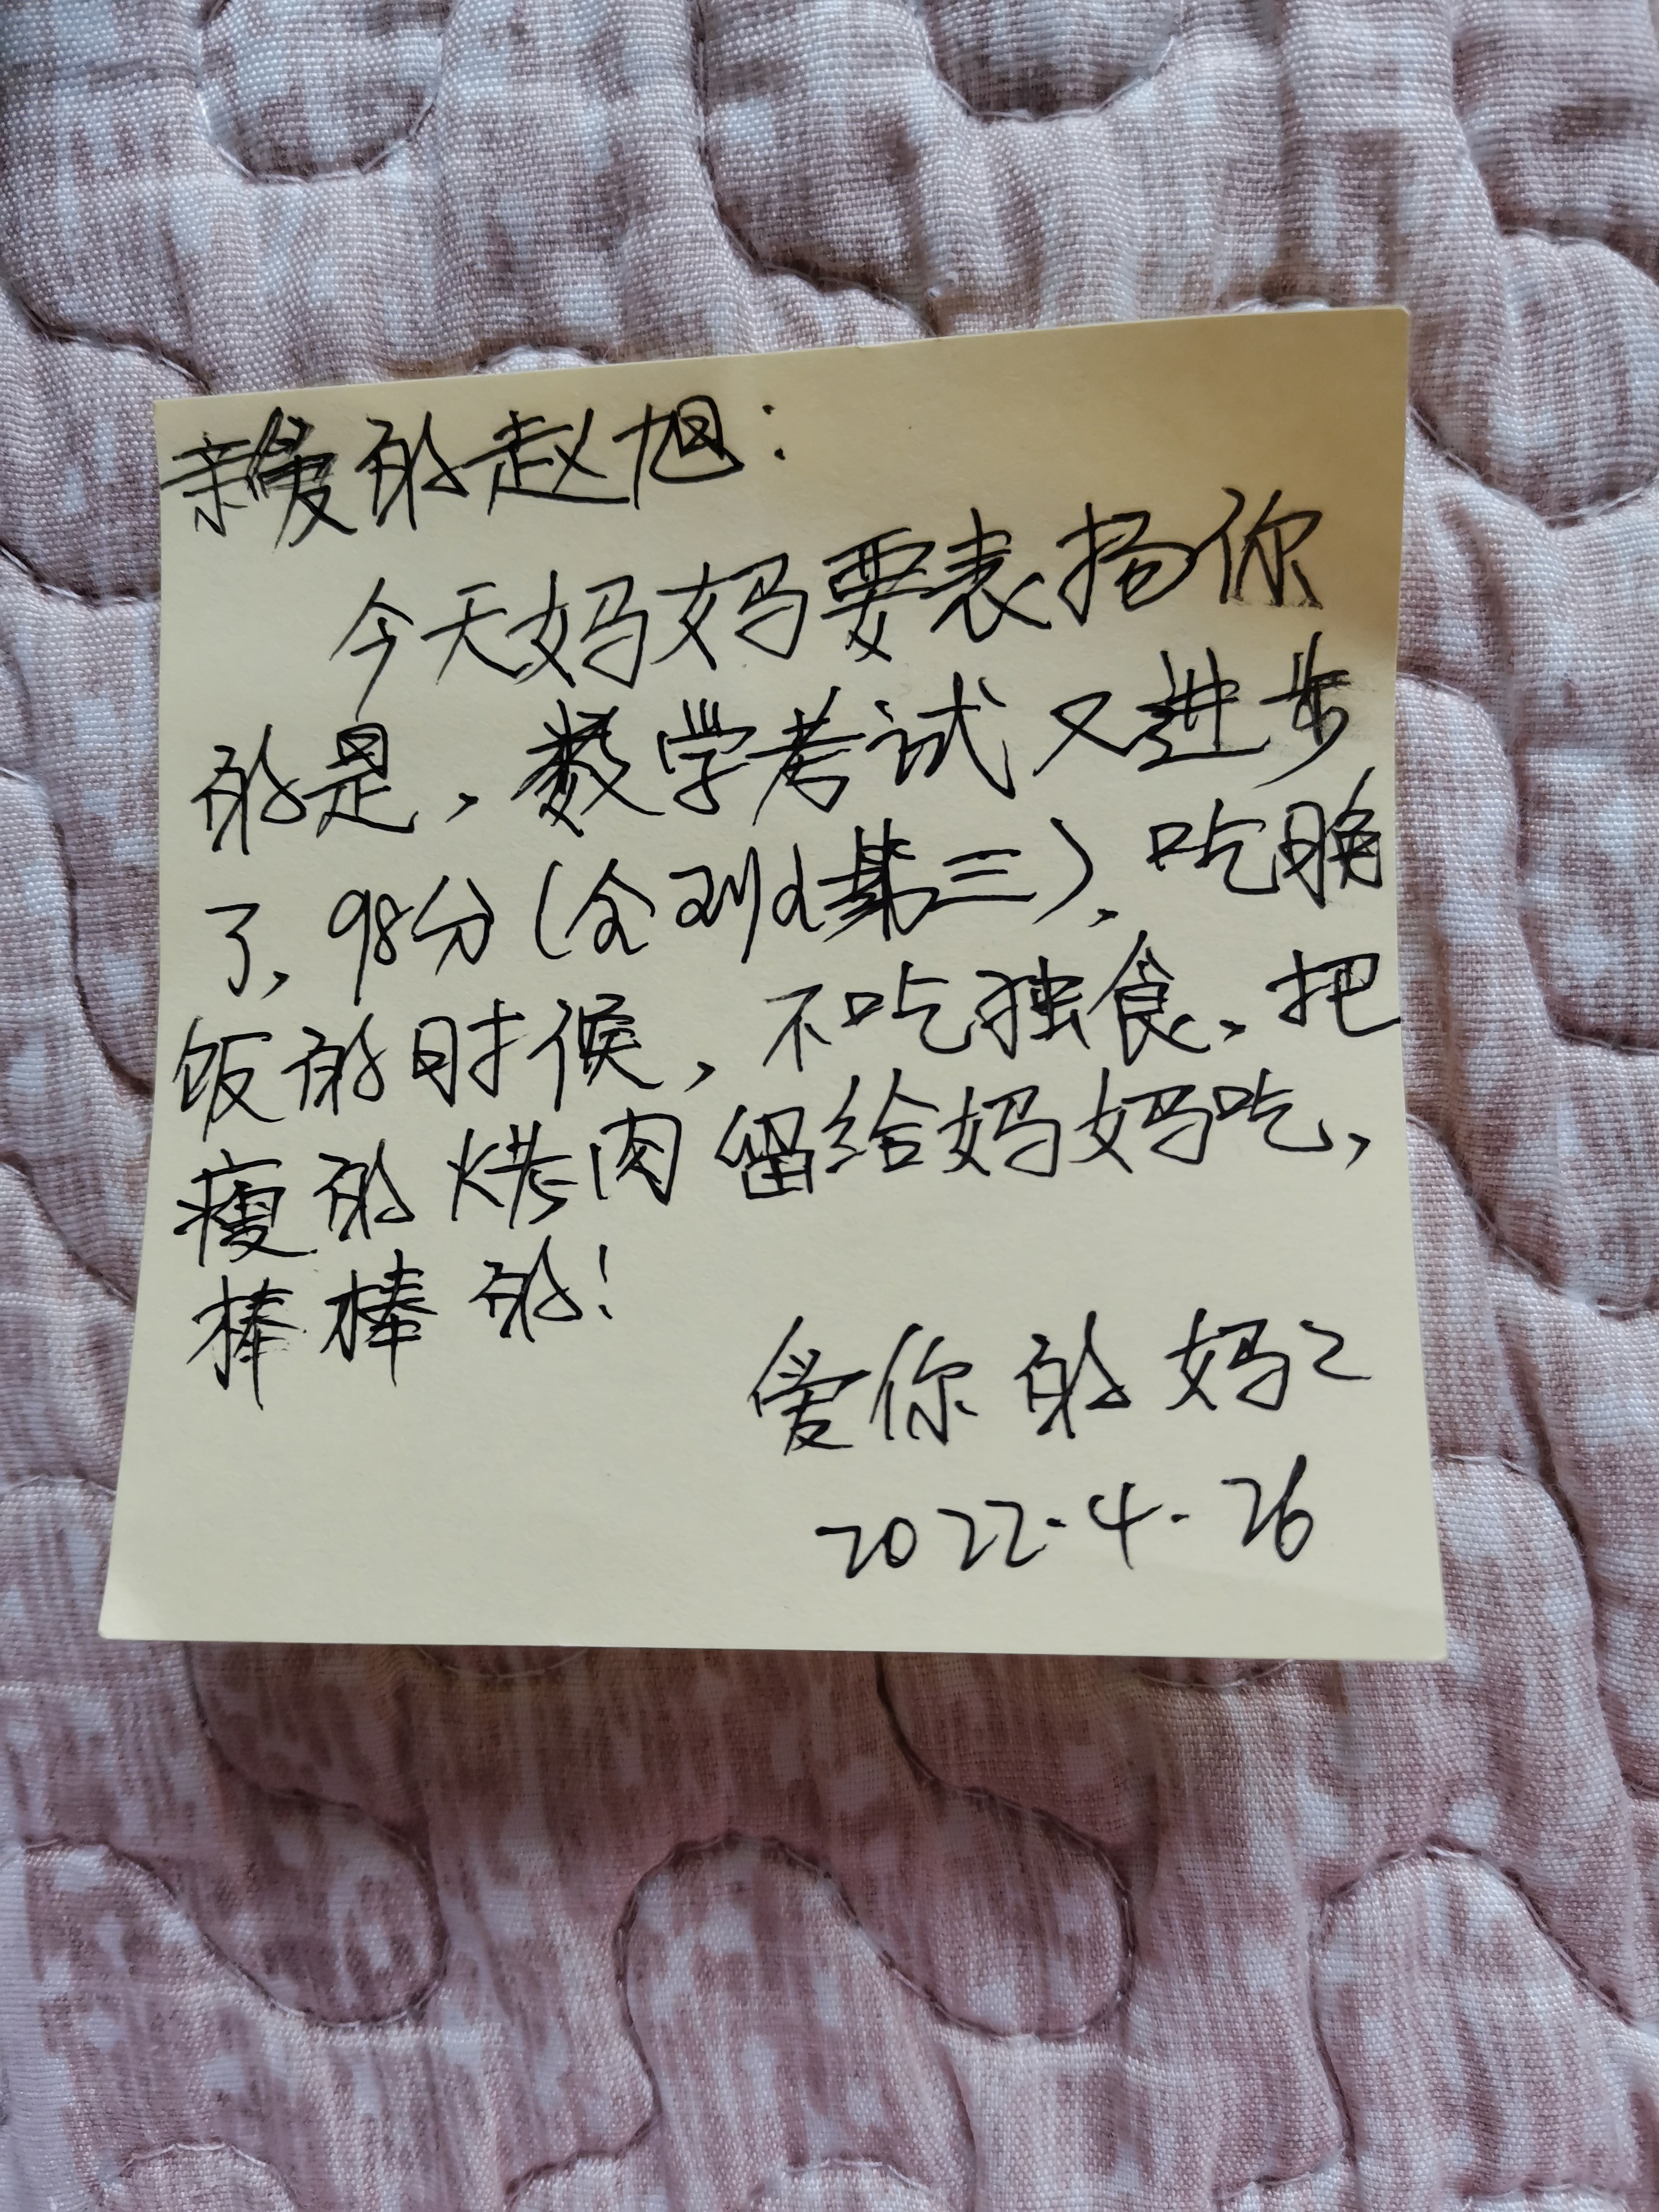 亲爱的赵旭：
今天妈妈要表扬你
的是，数学考试又进步
了，98分（全班第三），吃晚
饭的时候，不吃独食，把
瘦的烤肉留给妈妈吃，
棒棒的！
爱你的妈々
2022.4.26